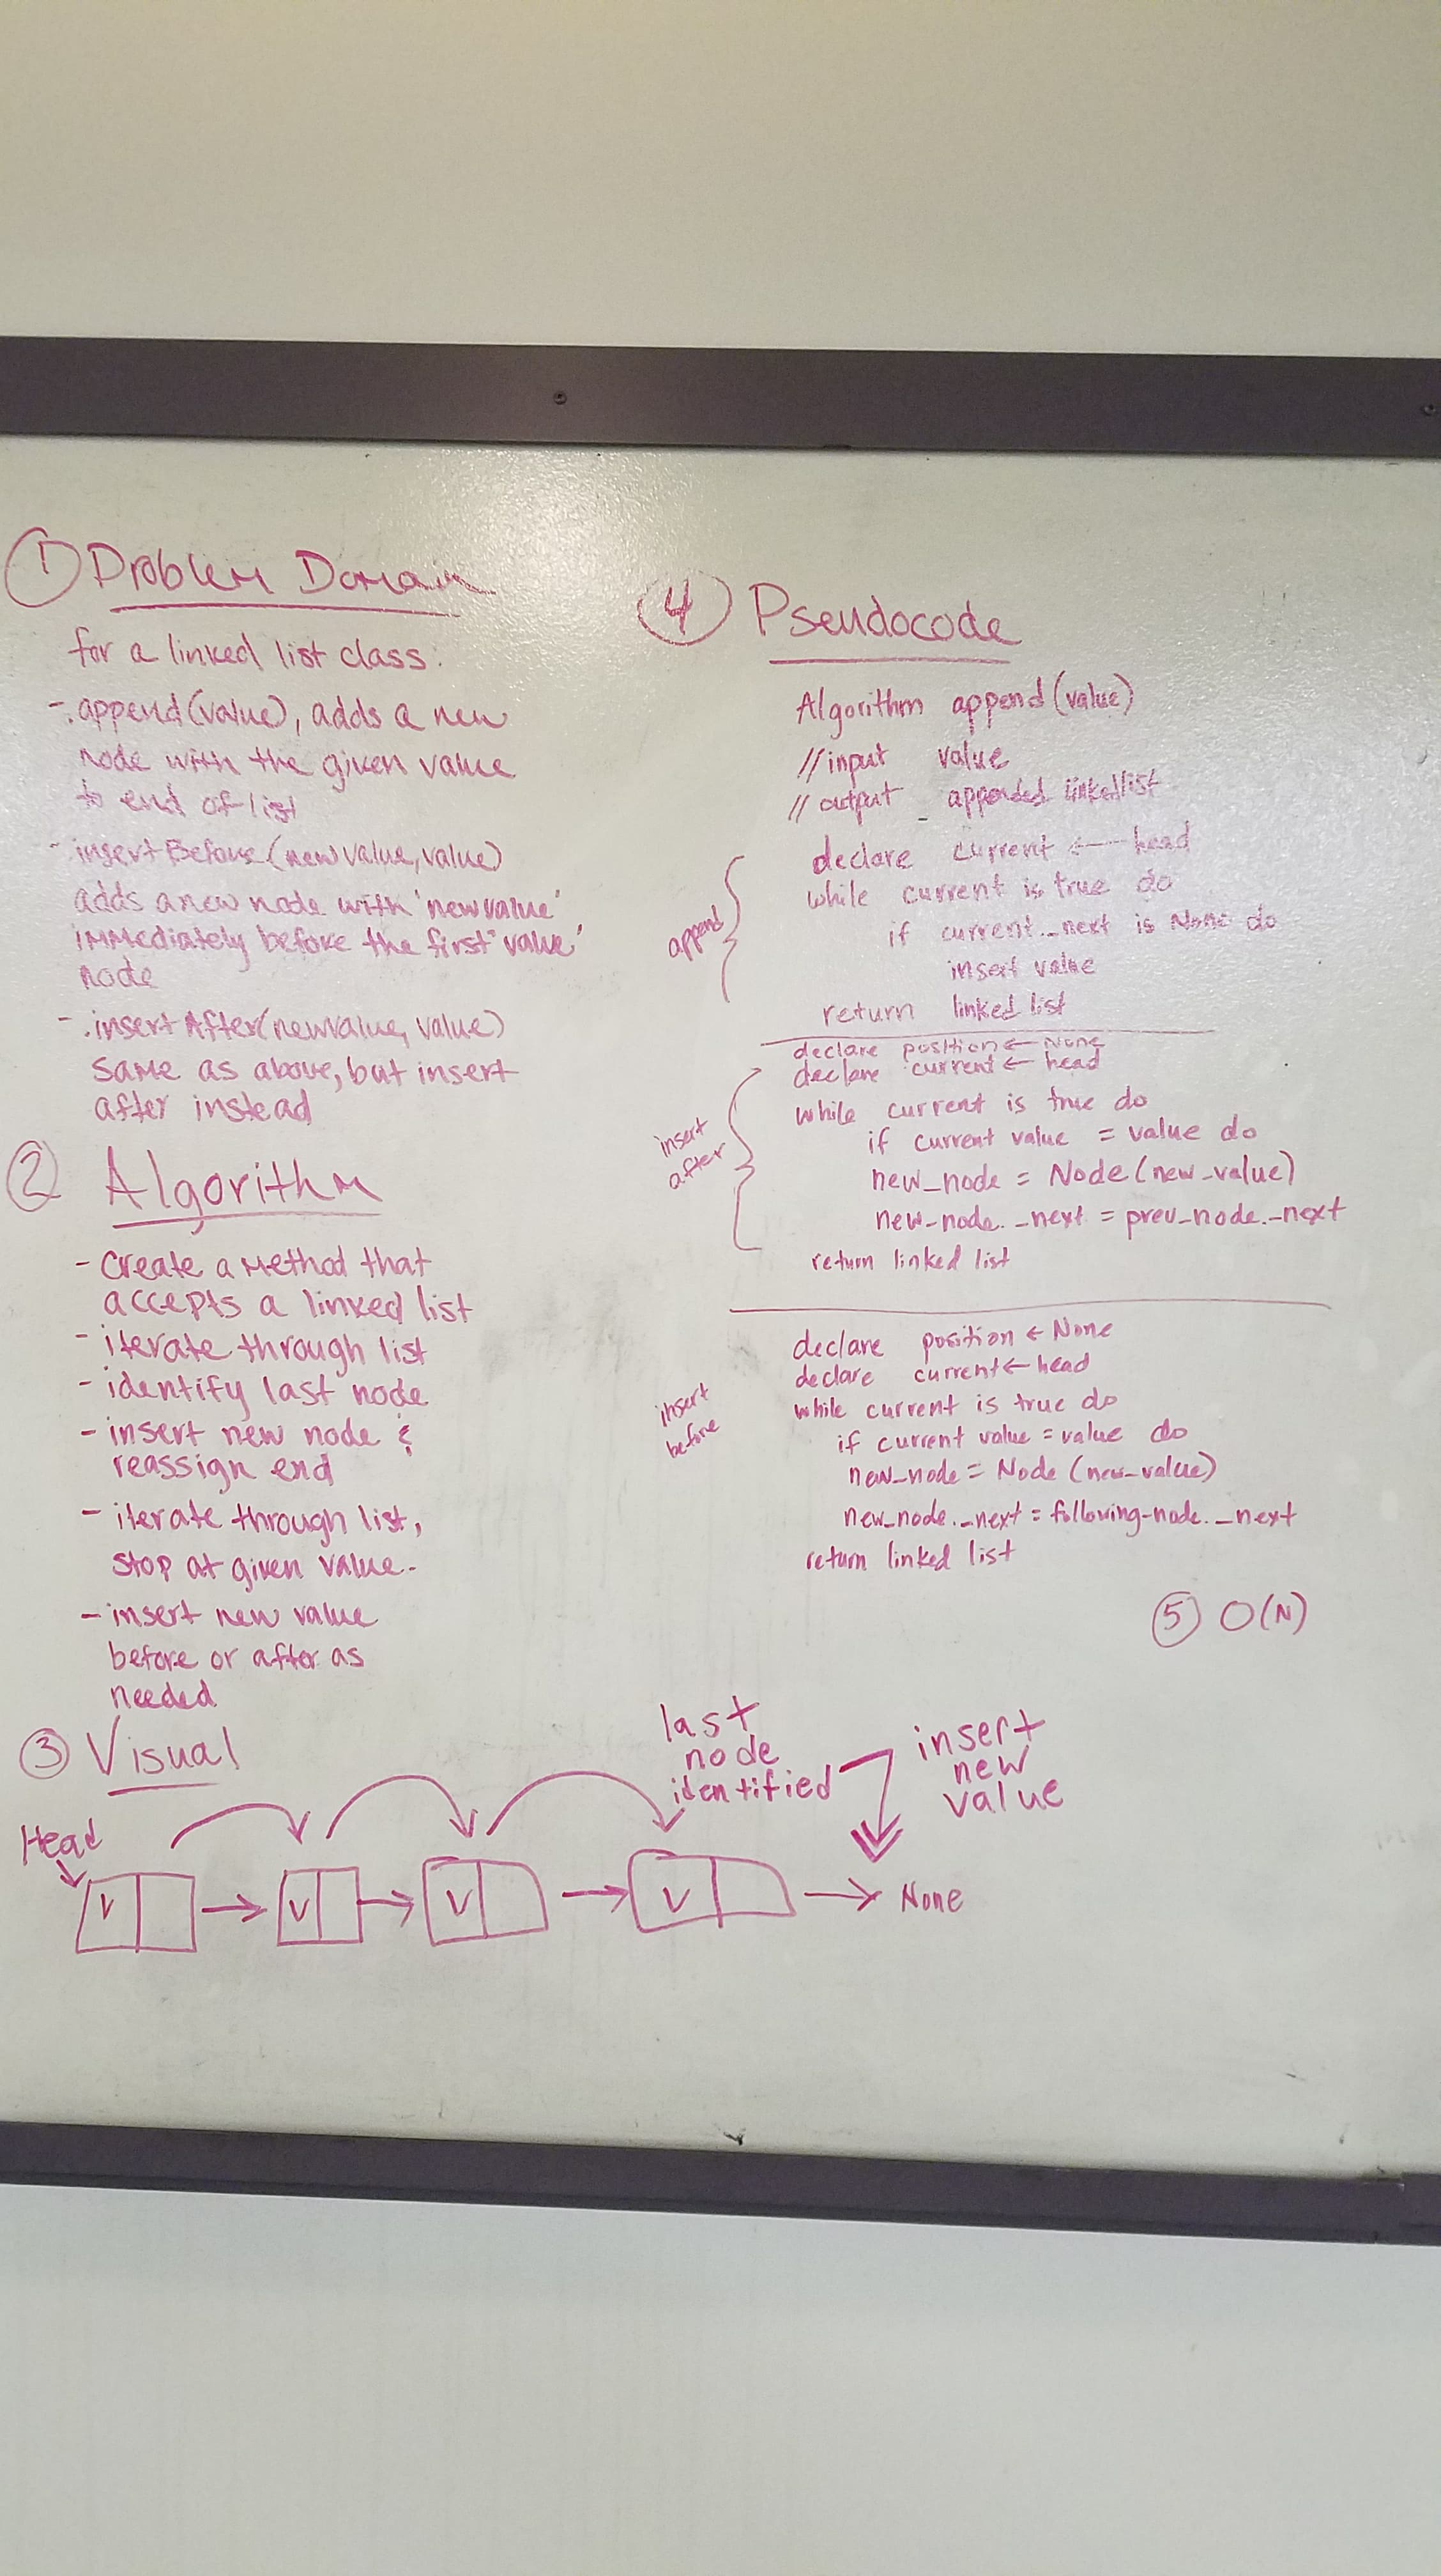 ① Problem Domain
for a linked list class:
- .append(value), adds a new
node with the given value
to end of list
- insertBefore(newvalue, value)
adds a new node with 'newvalue'
immediately before the first 'value'
node
- .insertAfter(newvalue, value)
same as above, but insert
after instead
② Algorithm
- Create a method that
accepts a linked list
- iterate through list
- identify last node
- insert new node &
reassign end
- iterate through list,
stop at given value.
- insert new value
before or after as
needed
③ Visual
Head
last
node
identified
insert
new
value
V
V
V
V
None
④ Pseudocode
Algorithm append(value)
//input value
//output appended linkedlist
append
declare current ← head
while current is true do
if current._next is None do
insert value
return linked list
insert
after
declare position ← None
declare current ← head
while current is true do
if current value = value do
new_node = Node(new_value)
new_node._next = prev_node._next
return linked list
insert
before
declare position ← None
declare current ← head
while current is true do
if current value = value do
new_node = Node (new_value)
new_node._next = following_node._next
return linked list
⑤ O(N)